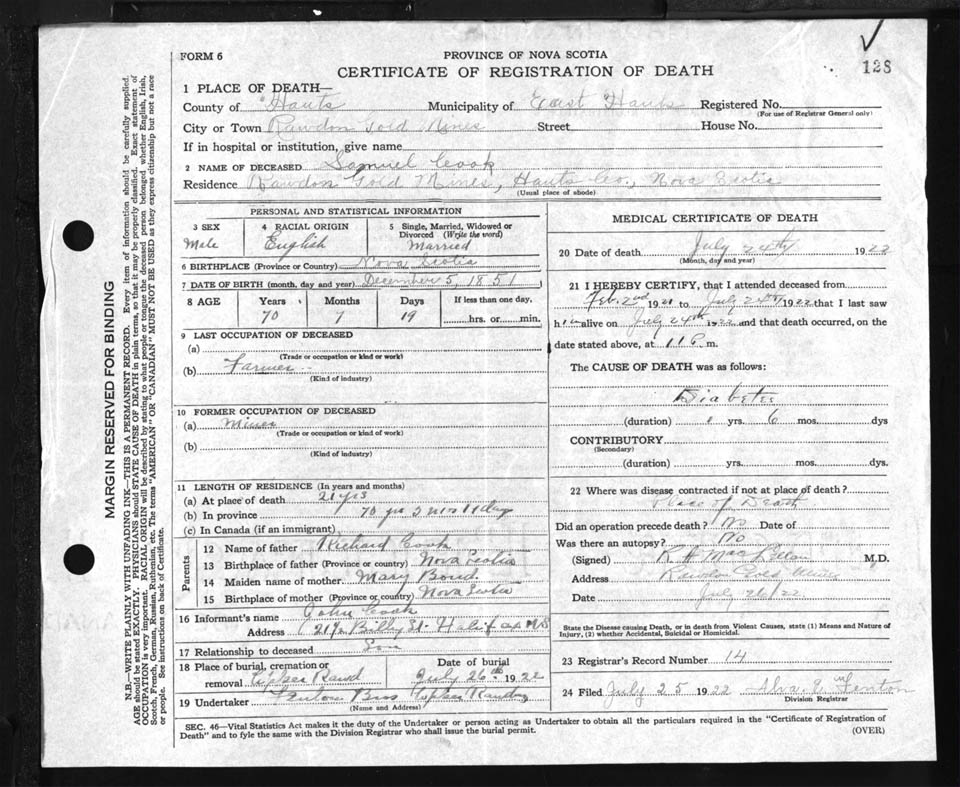 128
FORM 6
PROVINCE OF NOVA SCOTIA
CERTIFICATE OF REGISTRATION OF DEATH
1 PLACE OF DEATH—
County of Hants Municipality of East Hants Registered No.
(For use of Registrar General only)
City or Town Rawdon Gold Mines Street House No.
If in hospital or institution, give name
2 NAME OF DECEASED Samuel Cook
Residence Rawdon Gold Mines, Hants Co., Nova Scotia
(Usual place of abode)
PERSONAL AND STATISTICAL INFORMATION
3 SEX 4 RACIAL ORIGIN 5 Single, Married, Widowed or Divorced (Write the word)
Male English Married
6 BIRTHPLACE (Province or Country) Nova Scotia
7 DATE OF BIRTH (month, day and year) December 5, 1851
8 AGE Years Months Days If less than one day,
70 7 19 hrs. or min.
9 LAST OCCUPATION OF DECEASED
(a)
(Trade or occupation or kind or work)
(b) Farmer
(Kind of industry)
10 FORMER OCCUPATION OF DECEASED
(a) Miner
(Trade or occupation or kind of work)
(b)
(Kind of industry)
11 LENGTH OF RESIDENCE (In years and months)
(a) At place of death 21 yrs
(b) In province 70 yrs
(c) In Canada (if an immigrant)
Parents
12 Name of father Richard Cook
13 Birthplace of father (Province or country) Nova Scotia
14 Maiden name of mother Mary Bond
15 Birthplace of mother (Province or Country) Nova Scotia
16 Informant's name John Cook
Address St. Halifax NS
17 Relationship to deceased Son
18 Place of burial, cremation or removal Date of burial
July 26th 1922
19 Undertaker Bros
(Name and Address)
MEDICAL CERTIFICATE OF DEATH
20 Date of death July 24th 1922
(Month, day and year)
21 I HEREBY CERTIFY, that I attended deceased from
Feb. 2nd 1921 to July 24th 1922 that I last saw
h im alive on July 24th 1922 and that death occurred, on the
date stated above, at 11 P. m.
The CAUSE OF DEATH was as follows:
Diabetes
(duration) 1 yrs. 6 mos. dys
CONTRIBUTORY
(Secondary)
(duration) yrs. mos. dys.
22 Where was disease contracted if not at place of death?
Place of Death
Did an operation precede death? No Date of
Was there an autopsy? No
(Signed) M.D.
Address Rawdon Gold Mines
Date July 26/22
State the Disease causing Death, or in death from Violent Causes, state (1) Means and Nature of Injury, (2) whether Accidental, Suicidal or Homicidal.
23 Registrar's Record Number 14
24 Filed July 25 1922 Alva E Fenton
Division Registrar
SEC. 46—Vital Statistics Act makes it the duty of the Undertaker or person acting as Undertaker to obtain all the particulars required in the "Certificate of Registration of
Death" and to fyle the same with the Division Registrar who shall issue the burial permit. (OVER)
MARGIN RESERVED FOR BINDING
N.B.—WRITE PLAINLY WITH UNFADING INK—THIS IS A PERMANENT RECORD. Every item of information should be carefully supplied.
AGE should be stated EXACTLY. PHYSICIANS should STATE CAUSE OF DEATH in plain terms, so that it may be properly classified. Exact statement of
OCCUPATION is very important. RACIAL ORIGIN will be described by stating to what people or tongue the deceased person belonged whether English, Irish,
Scotch, French, German, Russian, Ruthenian, etc. The terms "AMERICAN" OR "CANADIAN" MUST NOT BE USED as they express citizenship but not a race
or people. See instructions on back of Certificate.